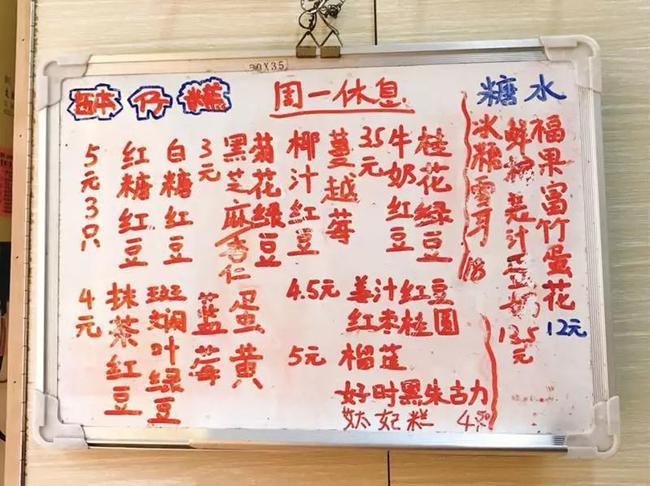 30X35
砵仔糕
周一休息
糖水
5元3只
红糖红豆
白糖红豆
3元
黑芝麻杏仁
菊花绿豆
椰汁红豆
蔓越莓
3.5元
牛奶红豆
桂花绿豆
4元
抹茶红豆
斑斓叶绿豆
蓝莓
蛋黄
4.5元 姜汁红豆
红枣桂圆
5元 榴莲
好时黑朱古力
妃糕
冰糖雪耳 18
鲜榨姜汁蛋奶 13.5元
福果富竹蛋花 12元